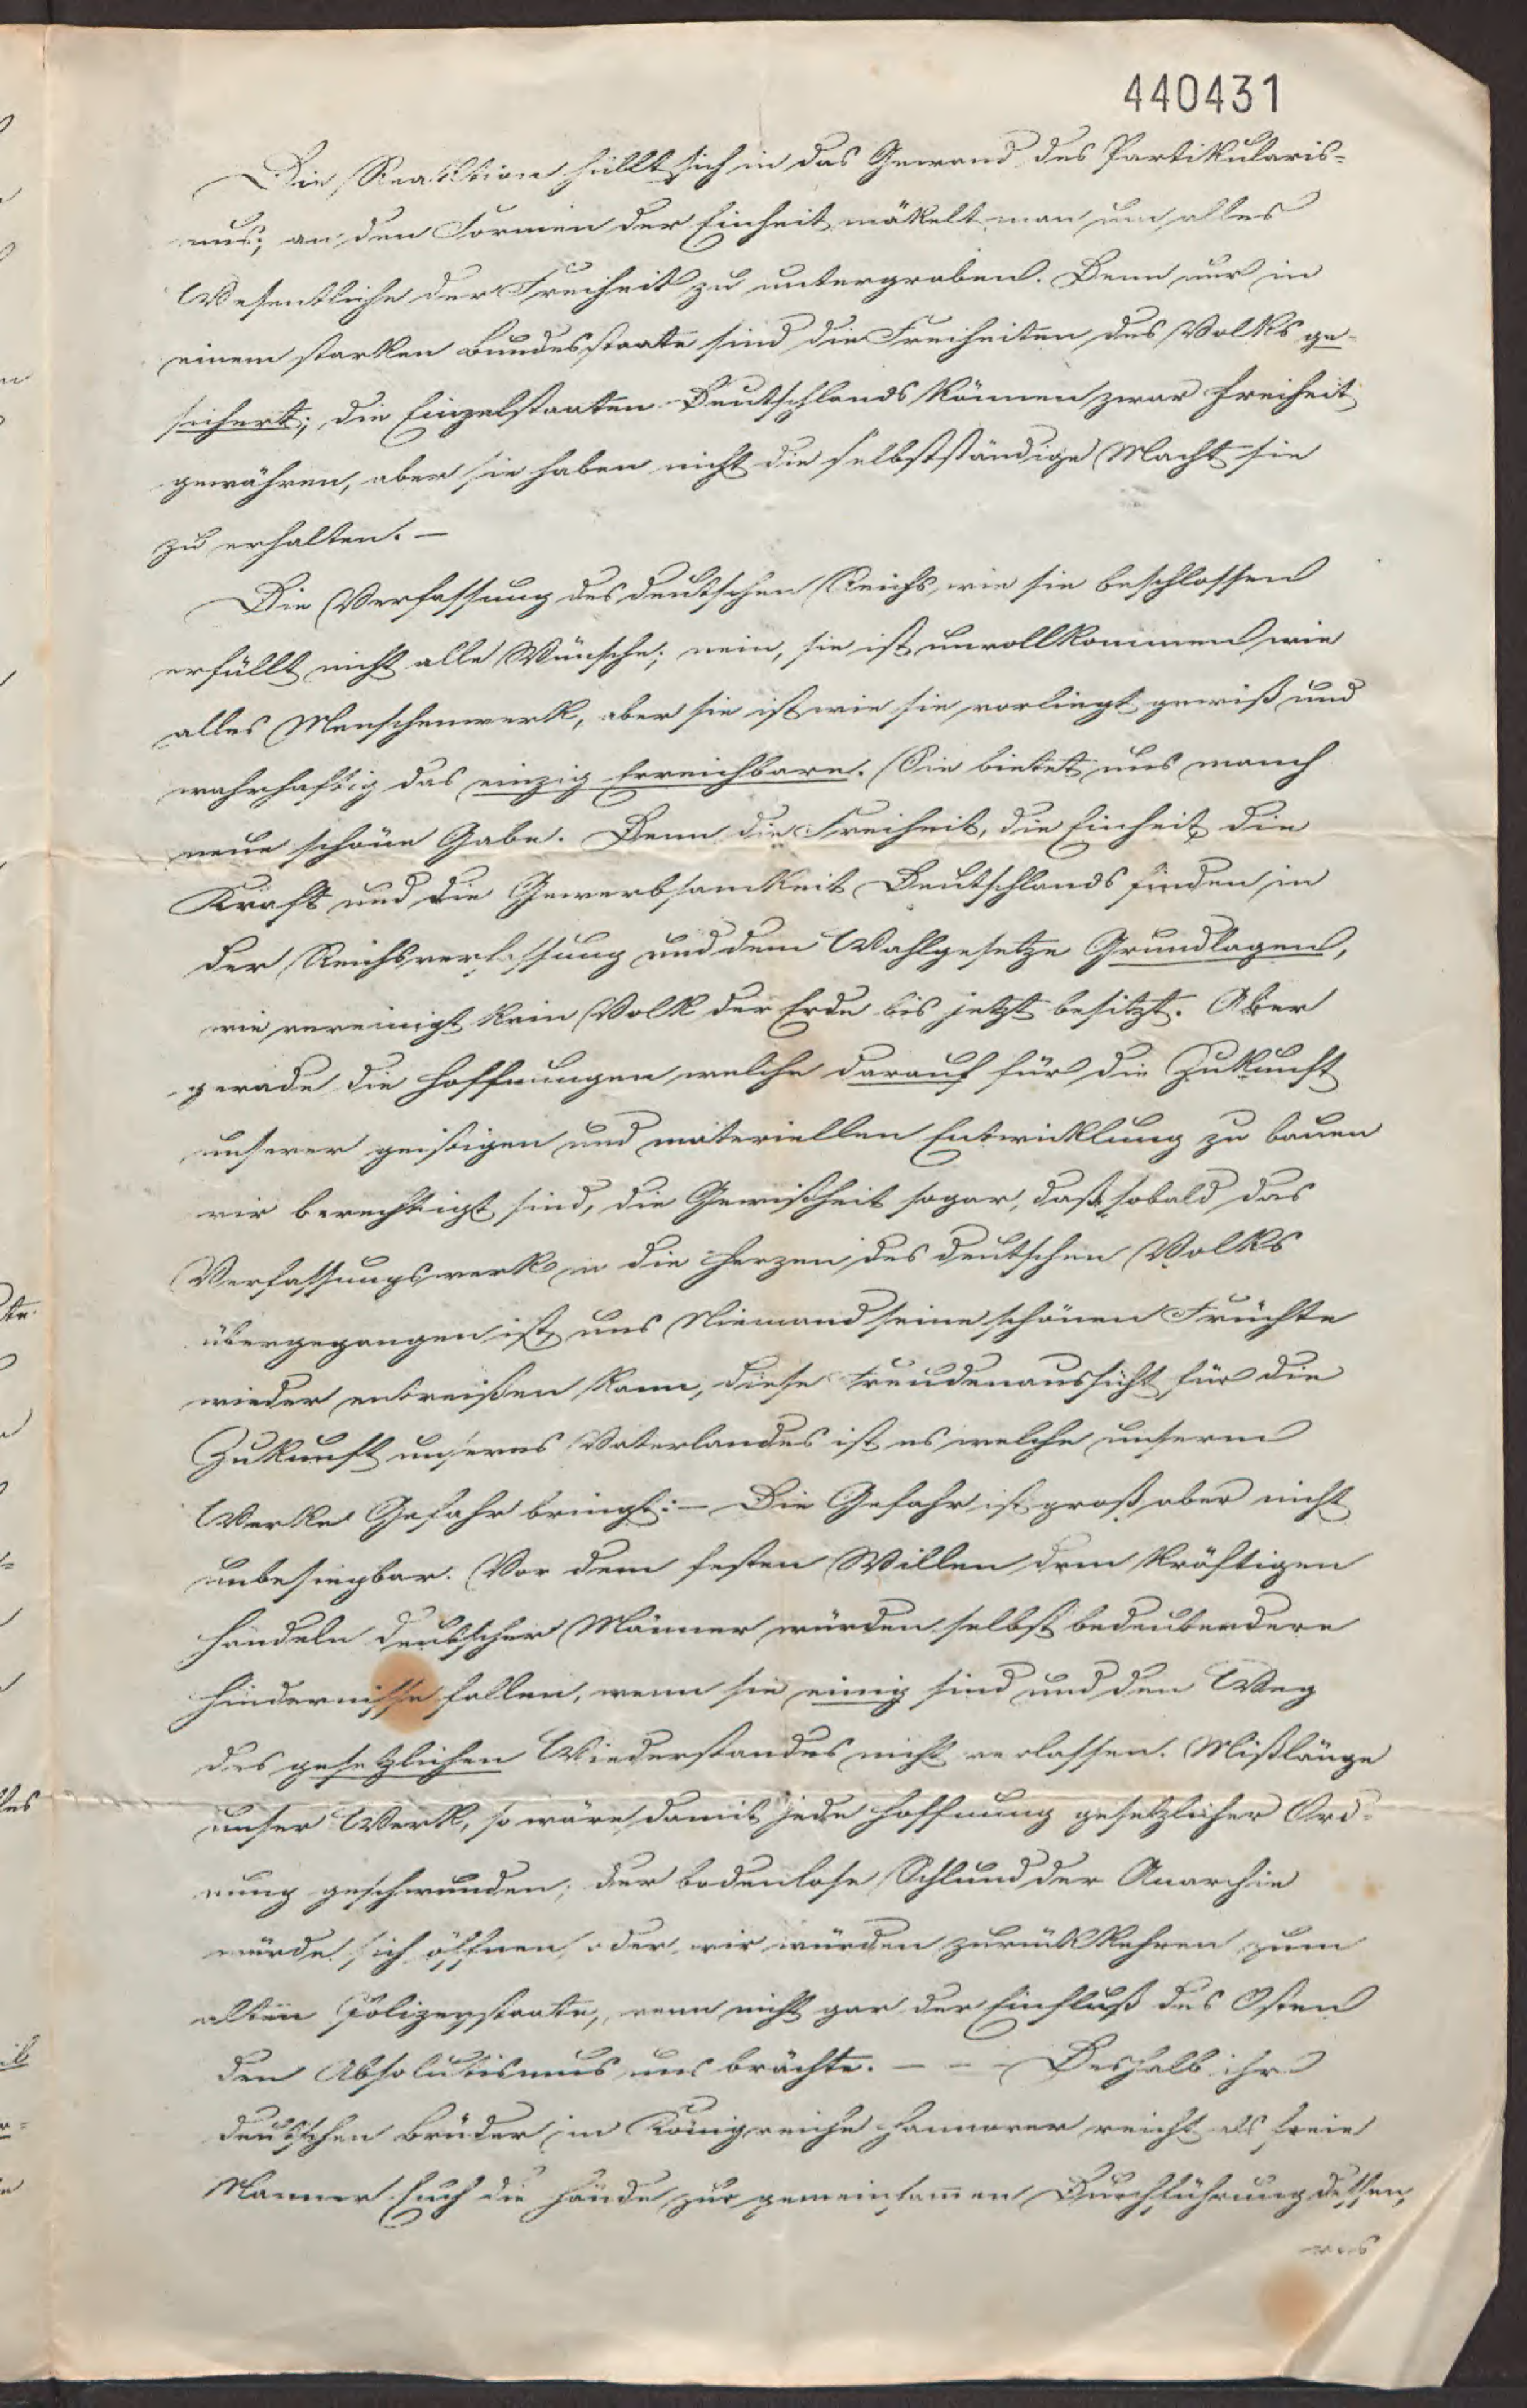 440431
Die Reaktion hüllt sich in das Gewand des Partikularis-
mus; an den Formen der Einheit mäkelt man um alles
Wesentliche der Freiheit zu untergraben. Denn nur in
einem starken Bundesstaate sind die Freiheiten des Volks ge-
sichert; die Einzelstaaten Deutschlands können zwar Freiheit
gewähren, aber sie haben nicht die selbstständige Macht sie
zu erhalten. —
Die Verfassung des deutschen Reichs, wie sie beschlossen
erfüllt nicht alle Wünsche; nein, sie ist unvollkommen wie
alles Menschenwerk, aber sie ist wie sie vorliegt gewiß und
wahrhaftig das einzig Erreichbare. Sie bietet uns manch
neue schöne Gabe. Denn die Freiheit, die Einheit die
Kraft und die Gewerbsamkeit Deutschlands finden in
der Reichsverfassung und dem Wahlgesetze Grundlagen,
wie vereinigt kein Volk der Erde bis jetzt besitzt. Aber
gerade die Hoffnungen welche darauf für die Zukunft
unserer geistigen und materiellen Entwicklung zu bauen
wir berechtigt sind, die Gewißheit sogar, daß, sobald das
Verfassungswerk in die Herzen des deutschen Volks
übergegangen ist, uns Niemand seine schönen Früchte
wieder entreißen kann, diese Freudenaussicht für die
Zukunft unseres Vaterlandes ist es welche unserm
Werke Gefahr bringt: — Die Gefahr ist groß aber nicht
unbesiegbar. Vor dem festen Willen dem kräftigen
Handeln deutscher Männer würden selbst bedeutendere
Hindernisse fallen, wenn sie einig sind und den Weg
des gesetzlichen Wiederstandes nicht verlassen. Mißlänge
unser Werk, so wäre damit jede Hoffnung gesetzlicher Ord-
nung geschwunden; der bodenlose Schlund der Anarchie
würde sich öffnen oder wir würden zurückkehren zum
alten Polizeystaate, wenn nicht gar der Einfluß des Osten
den Absolutismus uns brächte. — — — Deshalb ihr
deutschen Brüder im Königreiche Hannover reicht als freie
Männer Euch die Hände zur gemeinsamen Durchführung dessen,
was